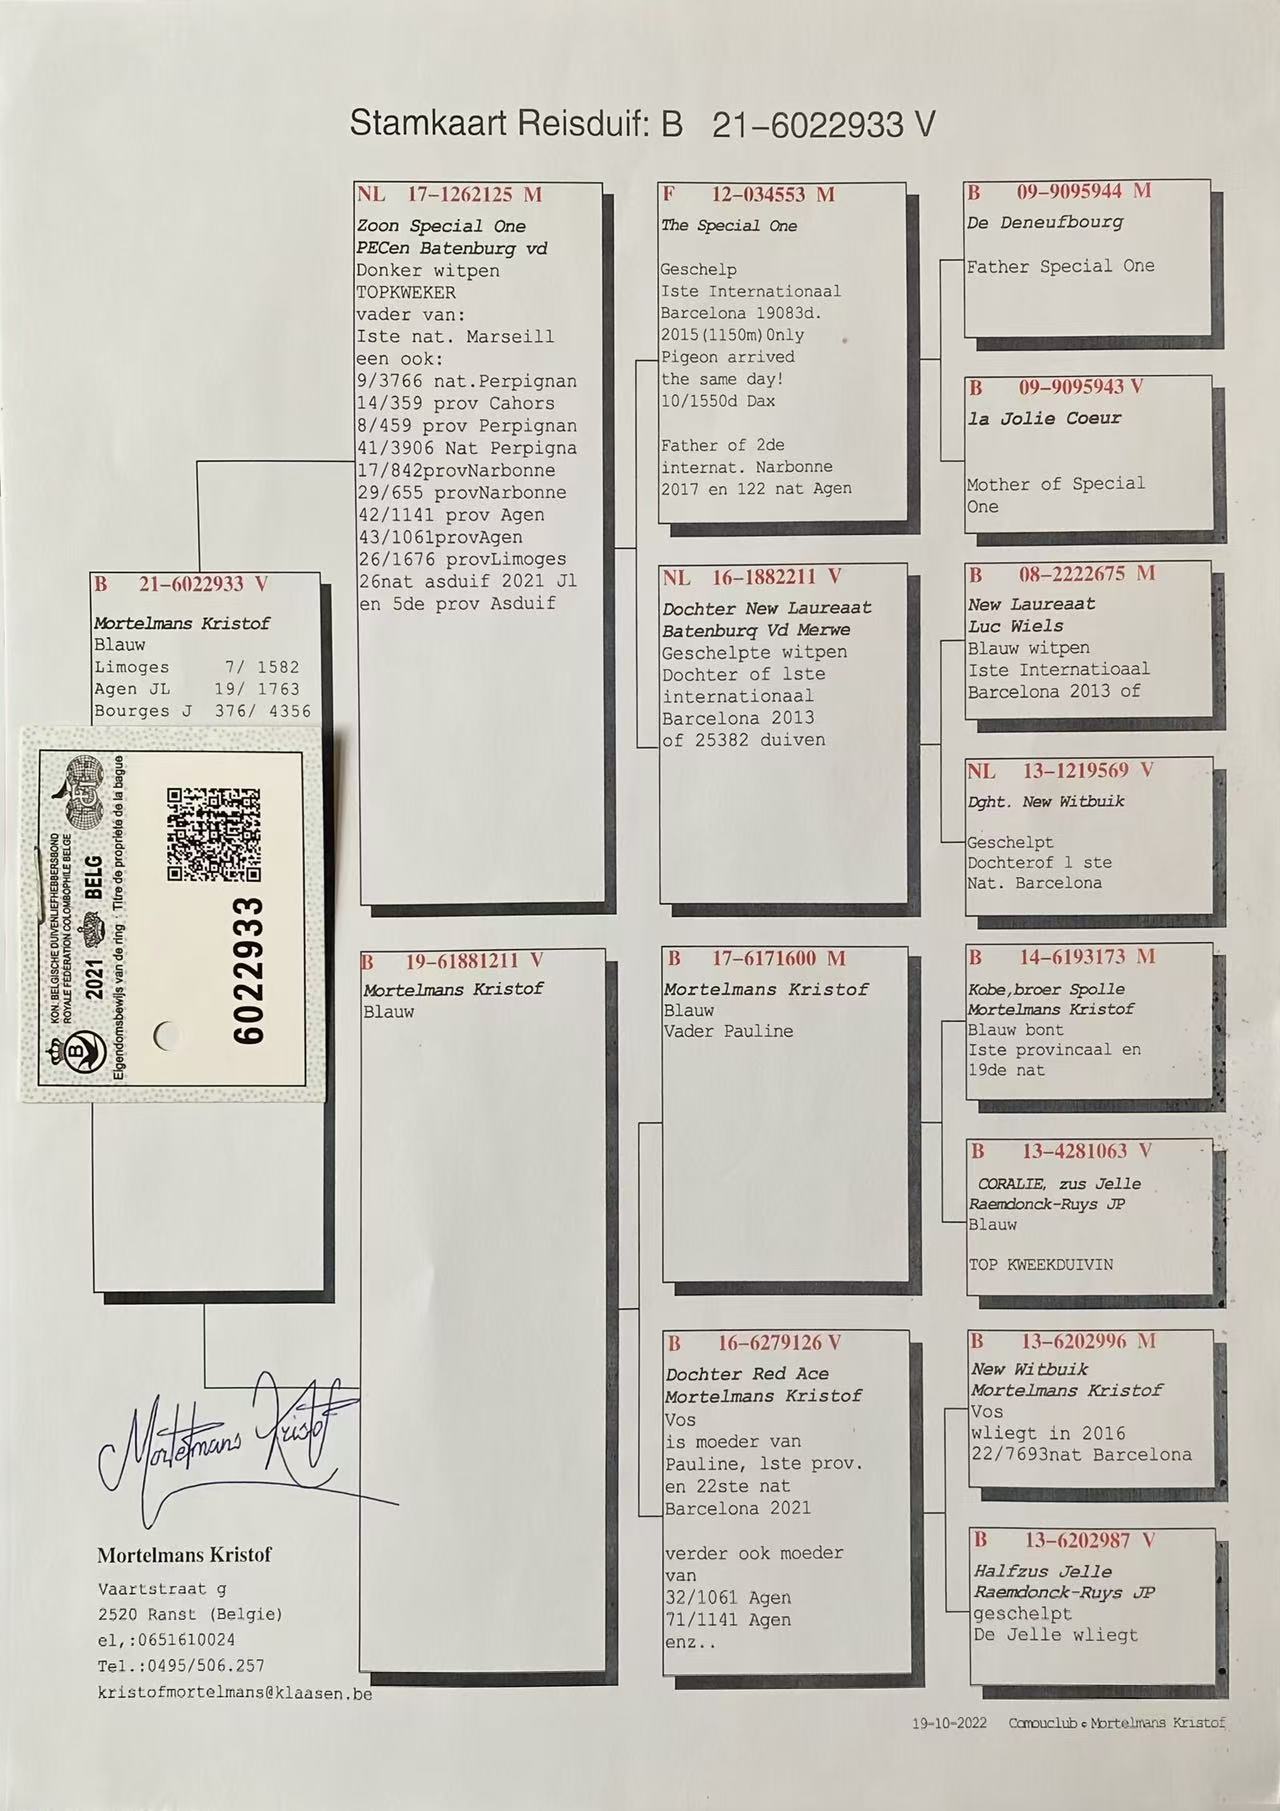 Stamkaart Reisduif: B 21-6022933 V
B 21-6022933 V
Mortelmans Kristof
Blauw
Limoges 7/ 1582
Agen JL 19/ 1763
Bourges J 376/ 4356
KON. BELGISCHE DUIVENLIEFHEBBERSBOND
ROYALE FEDERATION COLOMBOPHILE BELGE
2021 BELG
Eigendomsbewijs van de ring : Titre de propriété de la bague
B
6022933
NL 17-1262125 M
Zoon Special One
PECen Batenburg vd
Donker witpen
TOPKWEKER
vader van:
Iste nat. Marseill
een ook:
9/3766 nat.Perpignan
14/359 prov Cahors
8/459 prov Perpignan
41/3906 Nat Perpigna
17/842provNarbonne
29/655 provNarbonne
42/1141 prov Agen
43/1061provAgen
26/1676 provLimoges
26nat asduif 2021 Jl
en 5de prov Asduif
B 19-61881211 V
Mortelmans Kristof
Blauw
F 12-034553 M
The Special One
Geschelp
Iste Internationaal
Barcelona 19083d.
2015(1150m)Only
Pigeon arrived
the same day!
10/1550d Dax
Father of 2de
internat. Narbonne
2017 en 122 nat Agen
NL 16-1882211 V
Dochter New Laureaat
Batenburq Vd Merwe
Geschelpte witpen
Dochter of 1ste
internationaal
Barcelona 2013
of 25382 duiven
B 17-6171600 M
Mortelmans Kristof
Blauw
Vader Pauline
B 16-6279126 V
Dochter Red Ace
Mortelmans Kristof
Vos
is moeder van
Pauline, 1ste prov.
en 22ste nat
Barcelona 2021
verder ook moeder
van
32/1061 Agen
71/1141 Agen
enz..
B 09-9095944 M
De Deneufbourg
Father Special One
B 09-9095943 V
la Jolie Coeur
Mother of Special
One
B 08-2222675 M
New Laureaat
Luc Wiels
Blauw witpen
Iste Internatioaal
Barcelona 2013 of
NL 13-1219569 V
Dght. New Witbuik
Geschelpt
Dochterof 1 ste
Nat. Barcelona
B 14-6193173 M
Kobe,broer Spolle
Mortelmans Kristof
Blauw bont
Iste provincaal en
19de nat
B 13-4281063 V
CORALIE, zus Jelle
Raemdonck-Ruys JP
Blauw
TOP KWEEKDUIVIN
B 13-6202996 M
New Witbuik
Mortelmans Kristof
Vos
wliegt in 2016
22/7693nat Barcelona
B 13-6202987 V
Halfzus Jelle
Raemdonck-Ruys JP
geschelpt
De Jelle wliegt
Mortelmans Kristof
Mortelmans Kristof
Vaartstraat g
2520 Ranst (Belgie)
el,:0651610024
Tel.:0495/506.257
kristofmortelmans@klaasen.be
19-10-2022 Comouclub © Mortelmans Kristof